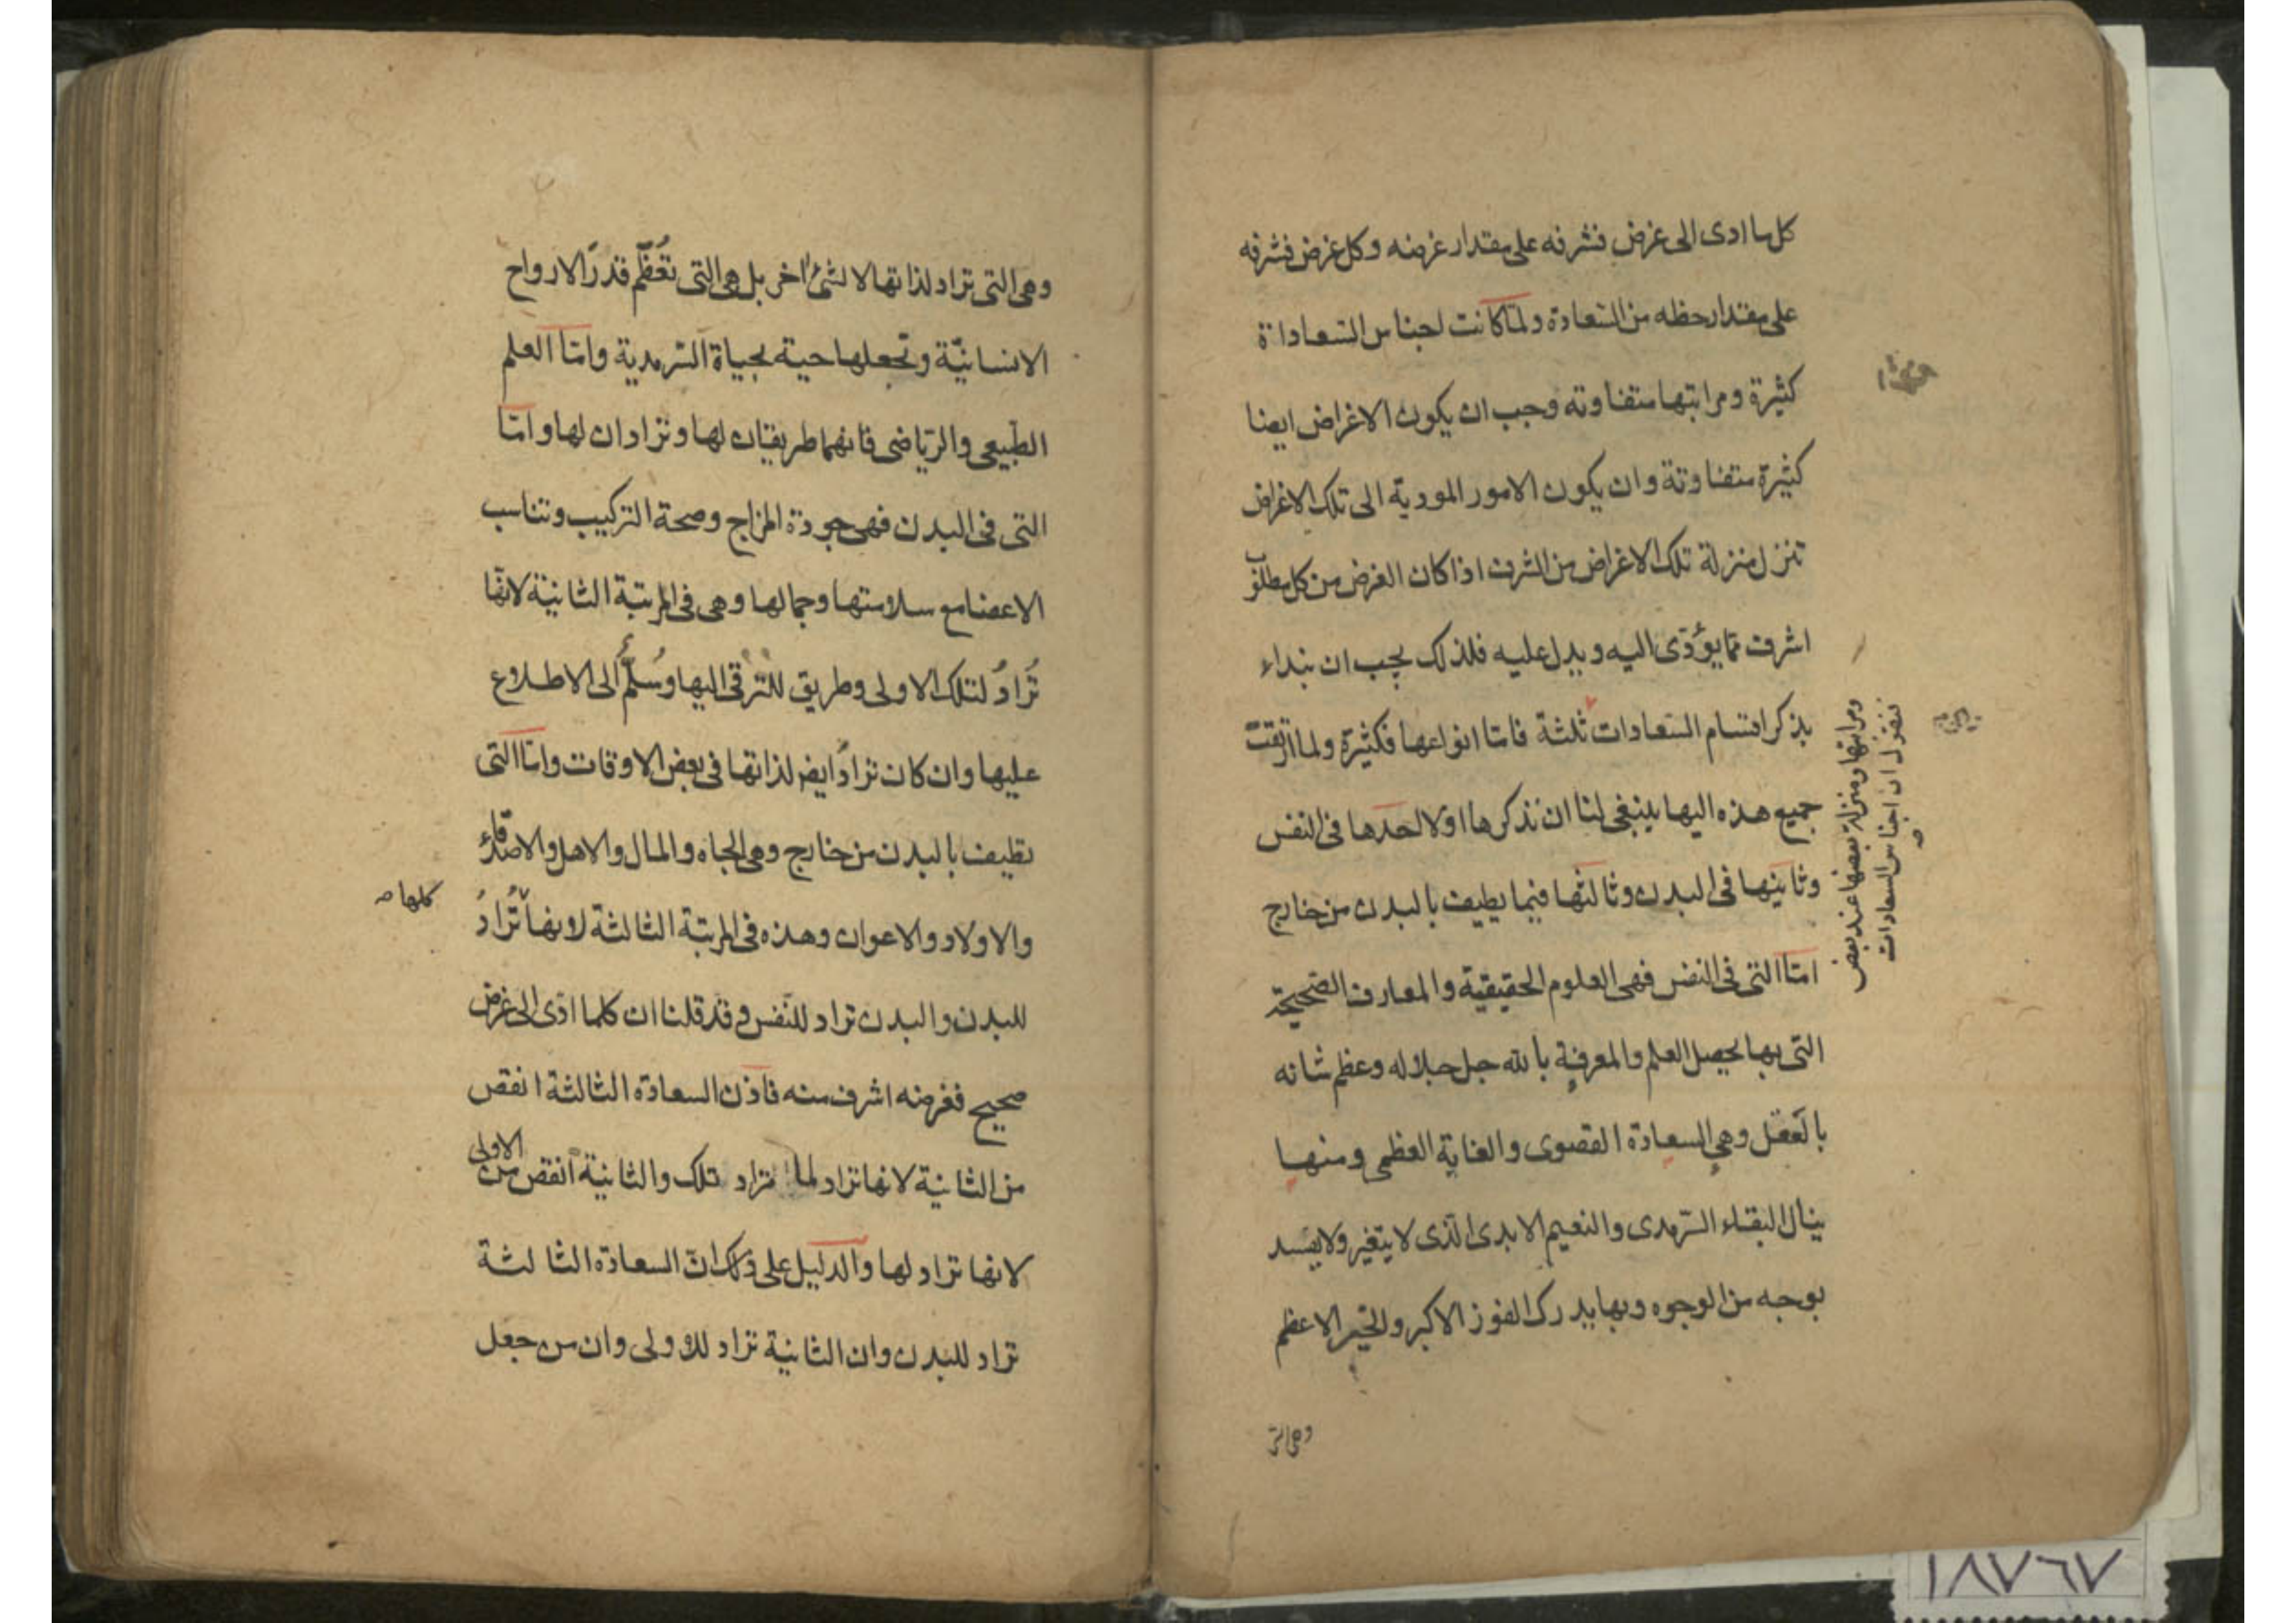 كل ما ادى الى غرض فشرفه على مقدار غرضه وكل غرض فشرفه
على مقدار حظه من السّعادة ولمّا كانت اجناس السّعاداة
كثيرة ومراتبها متفاوته وجب ان يكون الاغراض ايضا
كثيرة متفاوتة وان يكون الامور المودية الى تلك الاغراض
تنزل منزلة تلك الاغراض من الشرف اذا كان الغرض من كل مطلوب
اشرف ممّا يؤدّى اليه ويدل عليه فلذلك يجب ان نبداء
بذكر اقسام السّعادات ثلثة فامّا انواعها فكثيرة ولما ارتقت
جميع هذه اليها ينبغى لنا ان نذكرها اولا احدها فى النفس
وثانيها فى البدن وثالثها فيما يطيف بالبدن من خارج
امّا التى فى النفس فهى العلوم الحقيقية والمعارف الصّحيحة
التى بها يحصل العلم والمعرفة بالله جل جلاله وعظم شانه
بالعقل وهى السعادة القصوى والغاية العظمى ومنها
ينال البقاء السّرمدى والنعيم الابدى الّذى لا يتغير ولا يفسد
بوجه من الوجوه وبها يدرك الفوز الاكبر والخير الاعظم
فنقول ان اجناس السعادات
ومراتبها ومنزلة بعضها عند بعض
وهى التى
وهى التى تراد لذاتها لا لشئ اخر بل هى التى تُعَظّم قدرَ الارواح
الانسانيّة وتجعلها حية بحياة السّرمدية وامّا العلم
الطّبيعى والرّياضى فانهما طريقتان لها وتزادان لها وامّا
التى فى البدن فهى جودة المزاج وصحة التركيب وتناسب
الاعضا مع سلامتها وجمالها وهى فى المرتبة الثانية لانّها
تُرادُ لتلك الاولى وطريق للترقى اليها وسُلّمٌ الى الاطلاع
عليها وان كان تراد ايض لذاتها فى بعض الاوقات وامّا التى
تطيف بالبدن من خارج وهى الجاه والمال والاهل والاصدقاء
والاولاد والاعوان وهذه فى المرتبة الثالثة لانها تُرادُ
كلها صه
للبدن والبدن تراد للنّفس وقد قلنا ان كلما ادّى الى غرض
صحيح فغرضه اشرف منه فاذن السعادة الثالثة انقص
من الثانية لانها تراد لما تراد تلك والثانية انقص من الاولى
لانها تراد لها والدليل على ذلك انّ السعادة الثالثة
تراد للبدن وان الثانية تراد للاولى وان من جعل
١٨٧٦٧